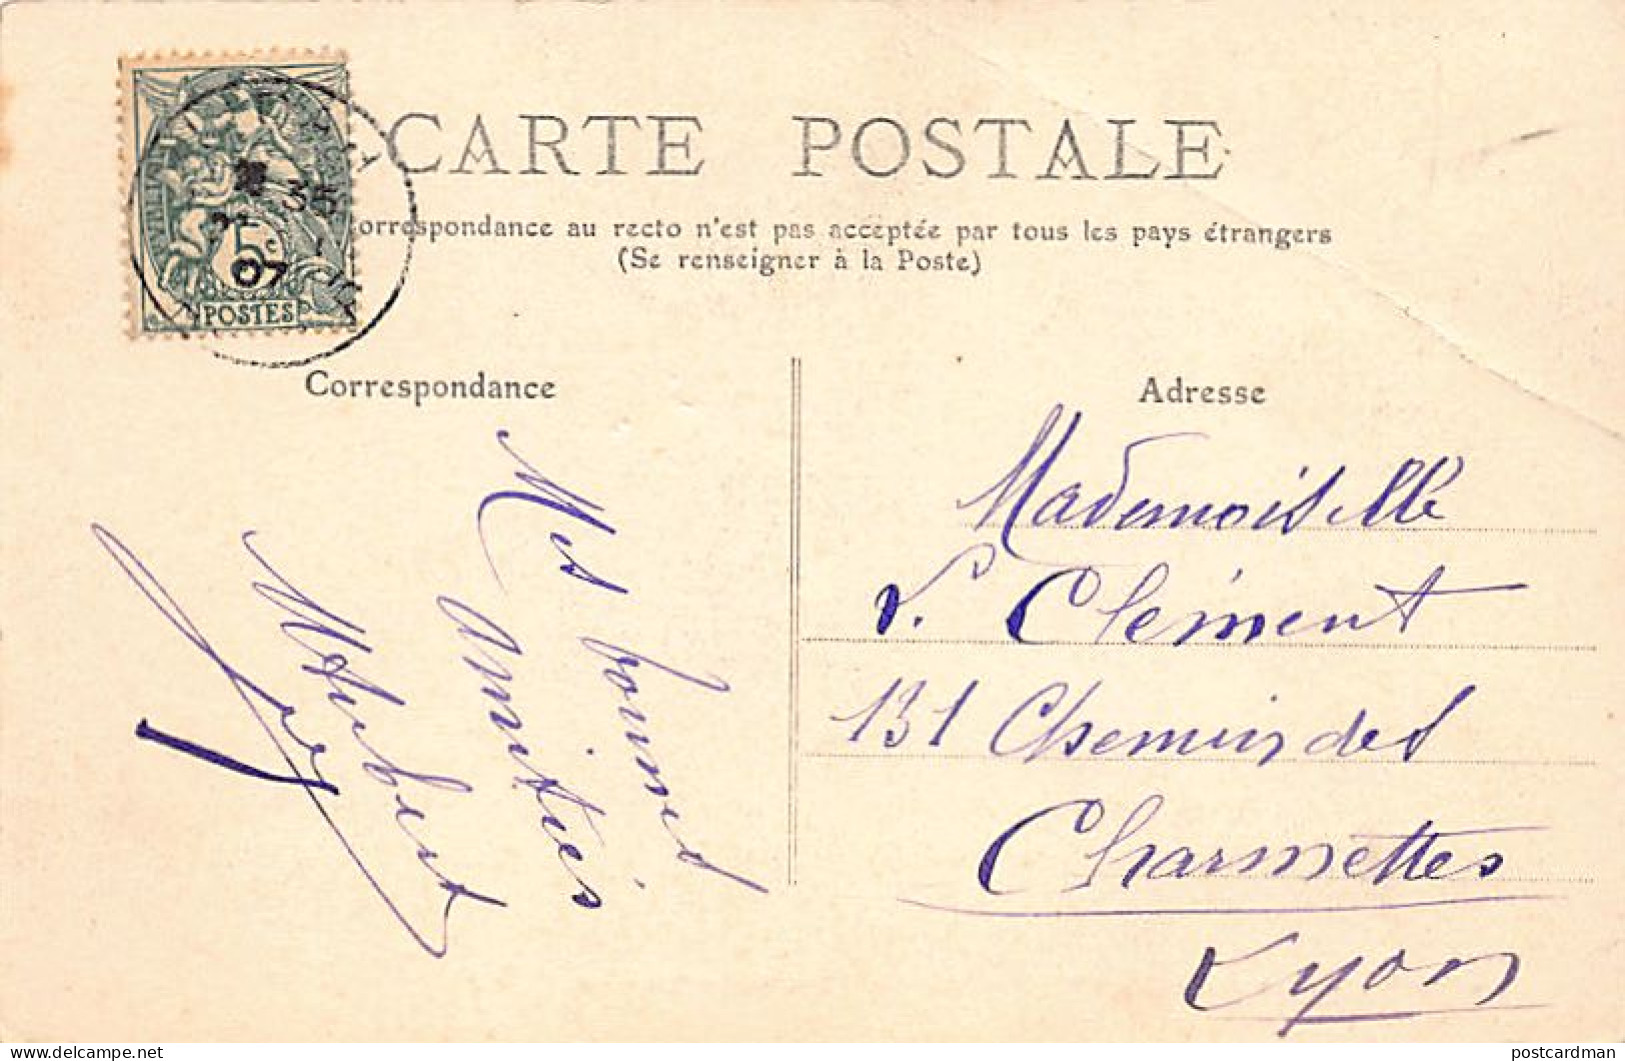 CARTE POSTALE
orrespondance au recto n'est pas acceptée par tous les pays étrangers
(Se renseigner à la Poste)
35
5c
07
POSTES
Correspondance
Mes bonnes
amitiés
Adresse
Mademoiselle
Clément
131 Chemin des
Charmettes
Lyon
postcardman